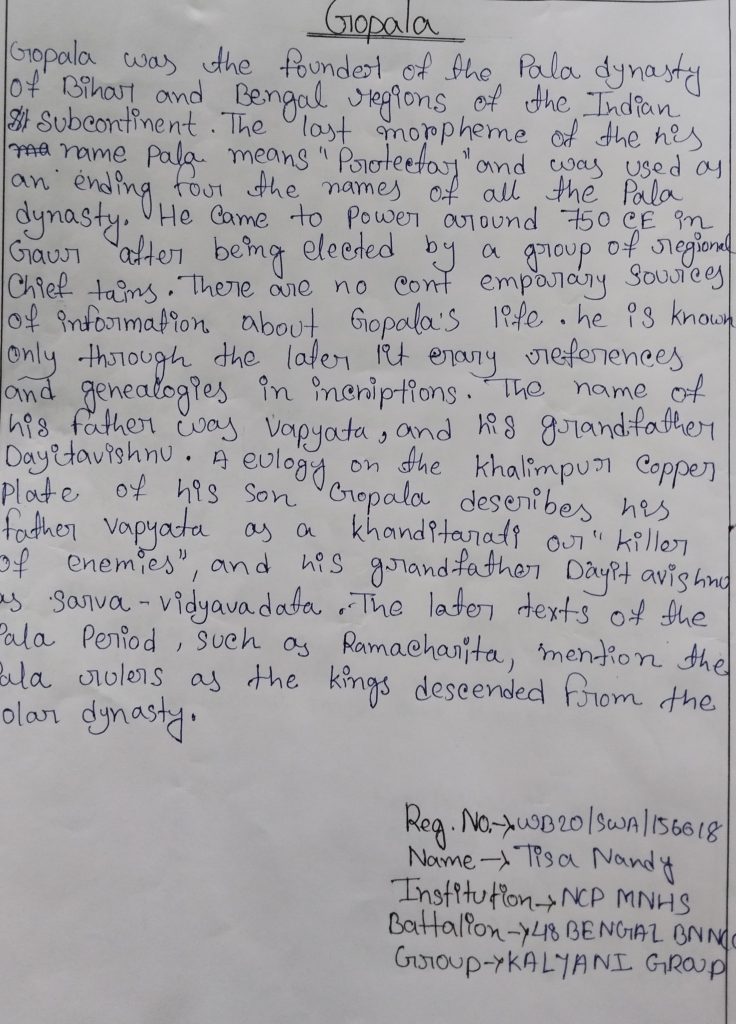 Gopala
Gopala was the founder of the Pala dynasty
of Bihar and Bengal regions of the Indian
Subcontinent. The last morpheme of the his
name Pala means "Protector" and was used as
an ending four the names of all the Pala
dynasty. He Came to Power around 750 CE in
Gaur after being elected by a group of regional
Chief tains. There are no cont emporary Sources
of information about Gopala's life. he is known
only through the later lit erary references
and genealogies in incriptions. The name of
his father was Vapyata, and his grandfather
Dayitavishnu. A eulogy on the Khalimpur Copper
Plate of his Son Gopala describes his
father Vapyata as a Khanditarati or "killer
of enemies", and his grandfather Dayit avishnu
as Sarva-vidyavadata. The later texts of the
Pala Period, such as Ramacharita, mention the
ala rulers as the kings descended from the
olar dynasty.
Reg. No.→WB20/SWA/156618
Name→Tisa Nandy
Institution→NCP MNHS
Battalion→48 BENGAL BN NC
Group→KALYANI GROUP